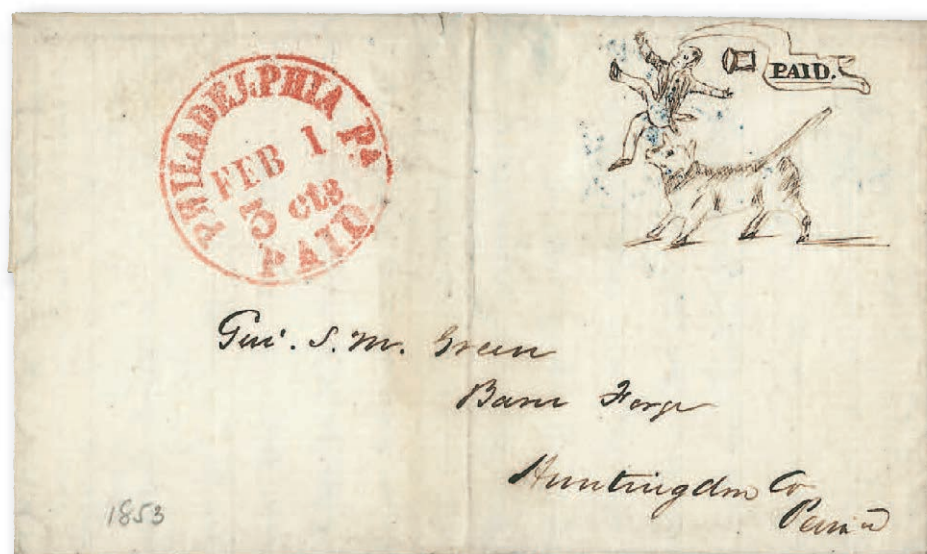 PHILADELPHIA Pa
FEB 1
3 cts
PAID
PAID.
Gen. S. M. Green
Barre Forge
Huntingdon Co
Penna
1853